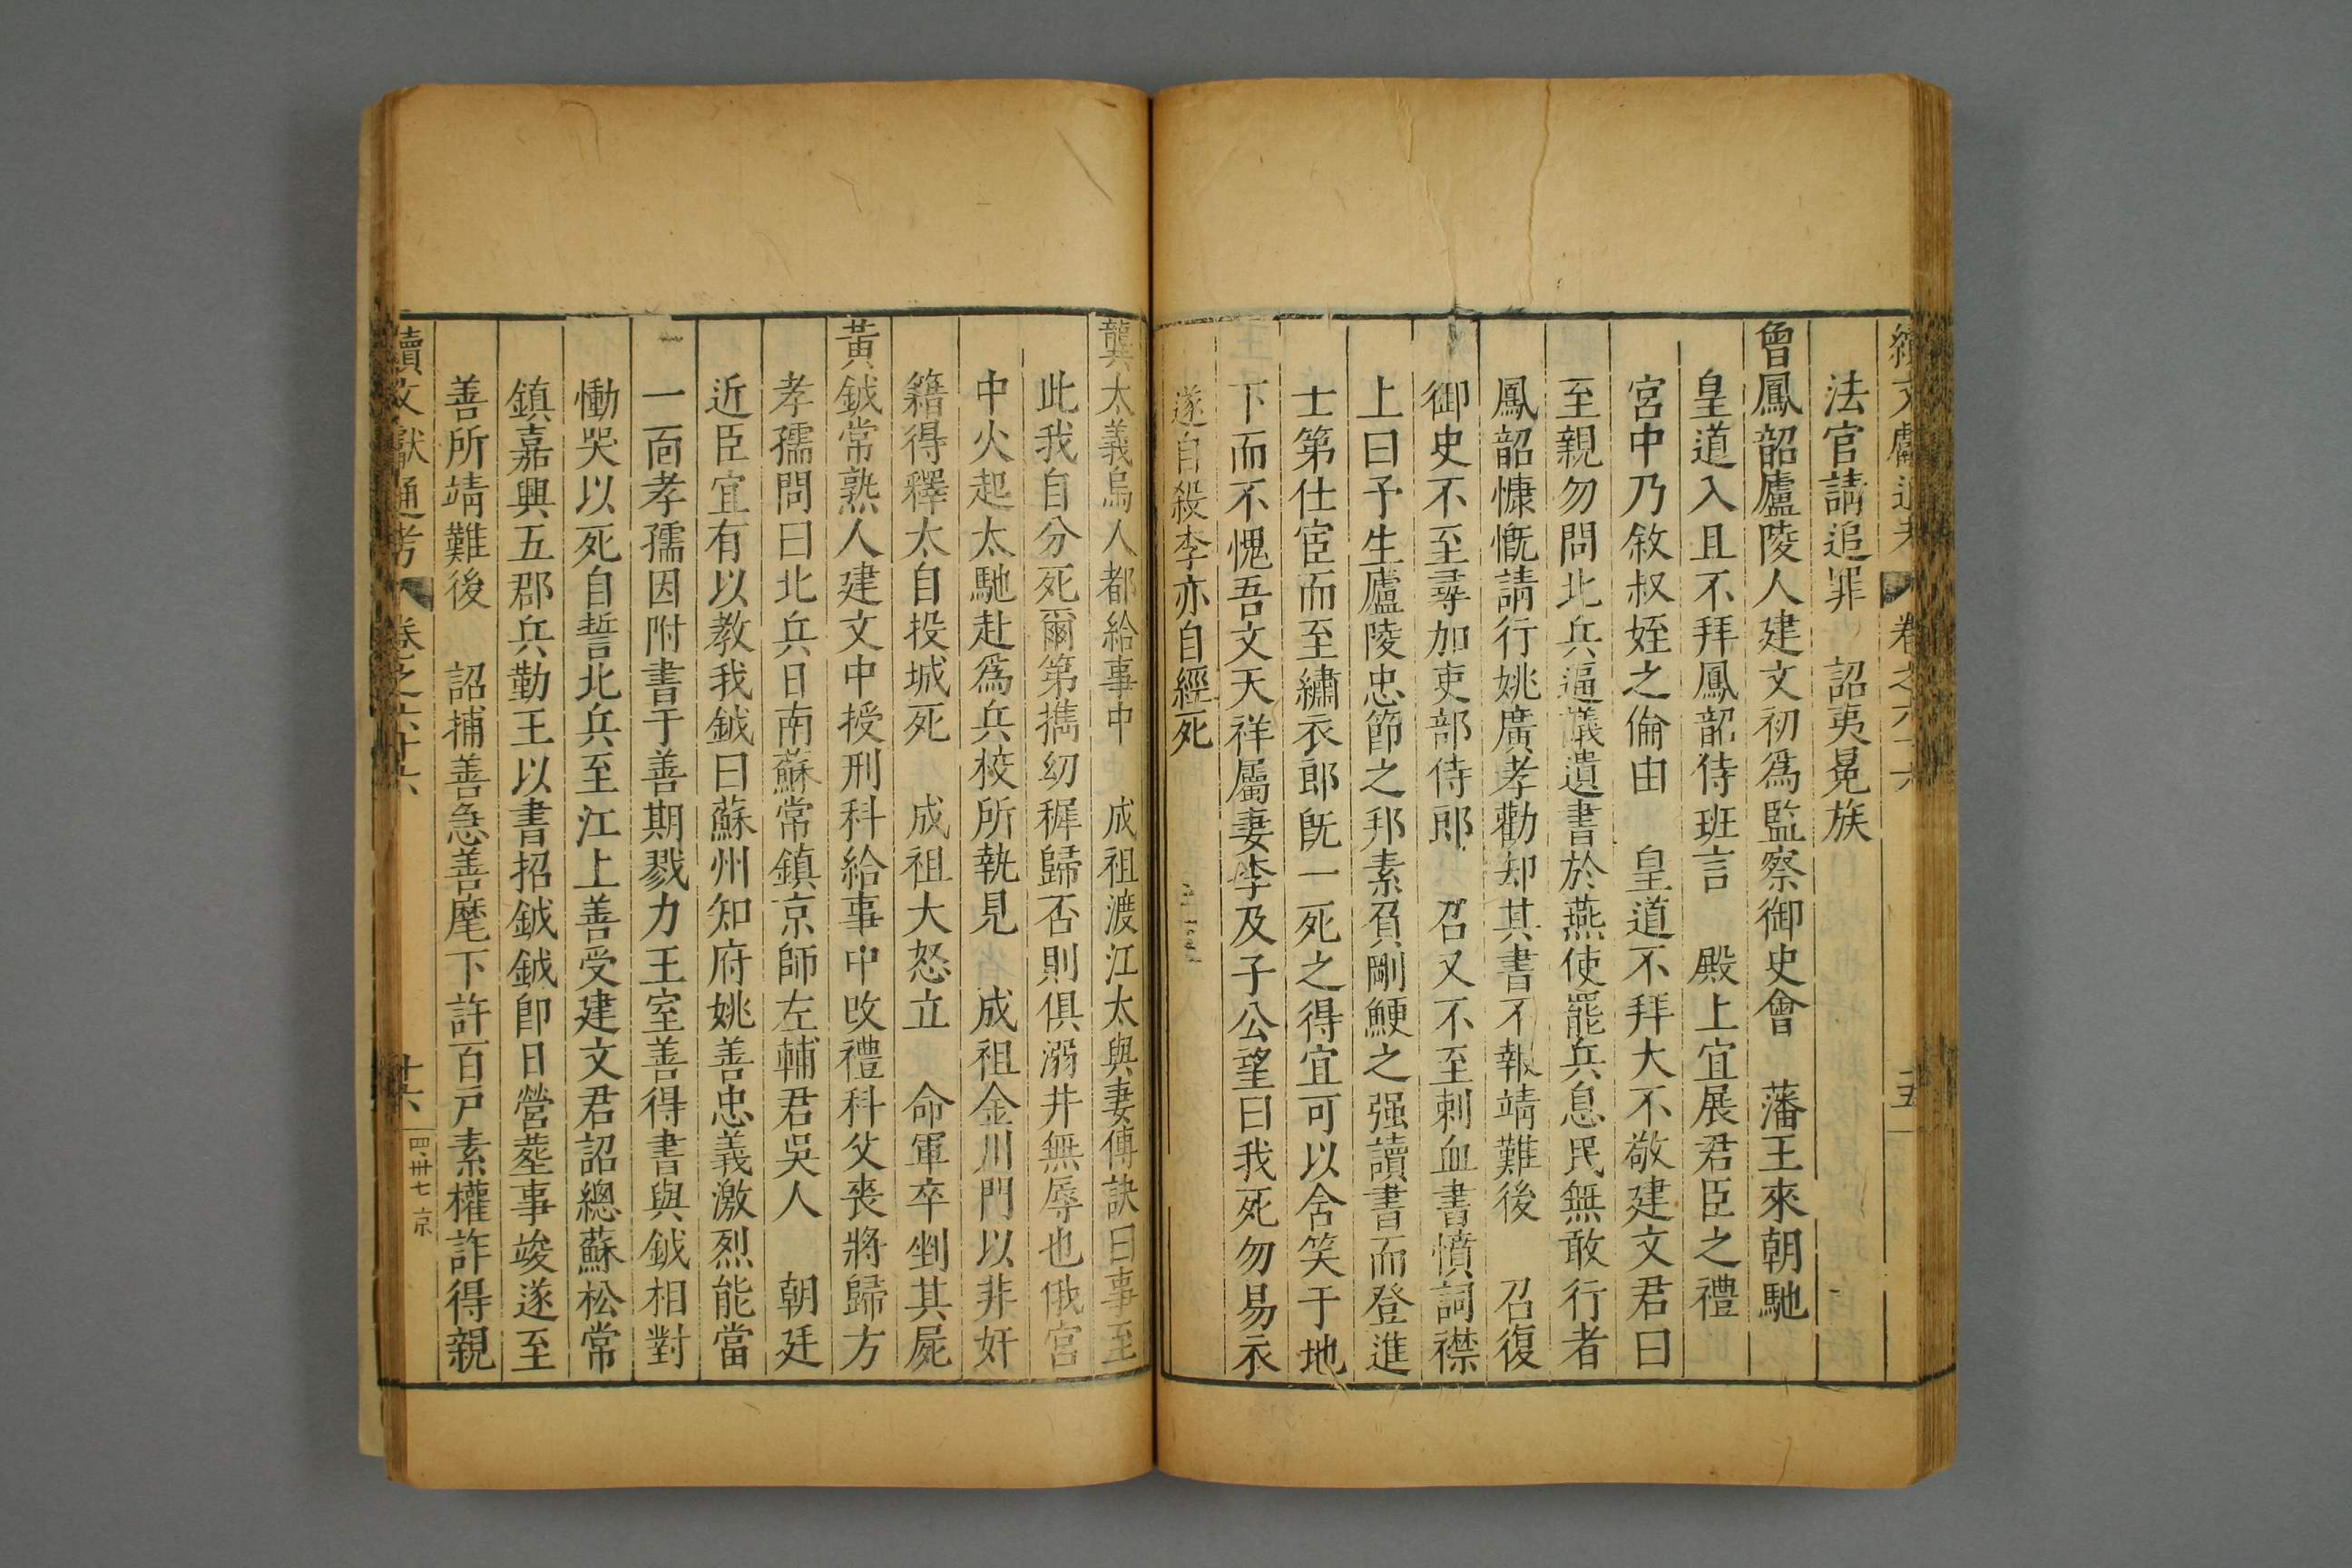 續文獻通考 卷之六十六 十五
法官請追罪 詔夷冕族
曾鳳韶廬陵人建文初爲監察御史會 藩王來朝馳
皇道入且不拜鳳韶侍班言 殿上宜展君臣之禮
宮中乃敘叔姪之倫由 皇道不拜大不敬建文君曰
至親勿問北兵逼議遺書於燕使罷兵息民無敢行者
鳳韶慷慨請行姚廣孝勸却其書不報靖難後 召復
御史不至尋加吏部侍郎 召又不至刺血書憤詞襟
上曰予生廬陵忠節之邦素負剛鯁之强讀書而登進
士第仕宦而至繡衣郎旣一死之得宜可以含笑于地
下而不愧吾文天祥屬妻李及子公望曰我死勿易衣
遂自殺李亦自經死
龔太義烏人都給事中 成祖渡江太與妻傅訣曰事至
此我自分死爾第擕幼穉歸否則俱溺井無辱也俄宮
中火起太馳赴爲兵校所執見 成祖金川門以非奸
籍得釋太自投城死 成祖大怒立 命軍卒剉其屍
黃鉞常熟人建文中授刑科給事中改禮科父喪將歸方
孝孺問曰北兵日南蘇常鎮京師左輔君吳人 朝廷
近臣宜有以教我鉞曰蘇州知府姚善忠義激烈能當
一面孝孺因附書于善期戮力王室善得書與鉞相對
慟哭以死自誓北兵至江上善受建文君詔總蘇松常
鎮嘉興五郡兵勤王以書招鉞鉞卽日營塟事竣遂至
善所靖難後 詔捕善急善麾下許百戶素權詐得親
續文獻通考 卷之六十六 十六 四卅七 京